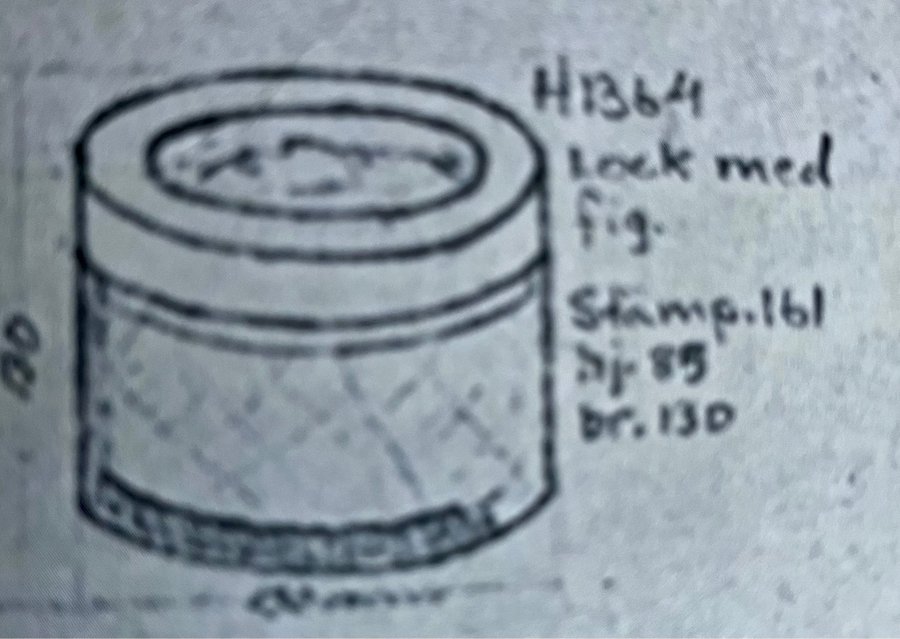 H1364
Lock med
fig.
Stämp. 161
hj. 85
br. 130